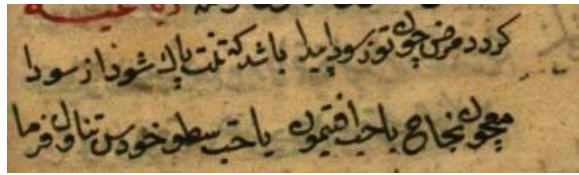 کردد مرض چون تو ز سودا پیدا باشد که تنت پاک شود از سودا
معجون نجاح یا حب افتیمون یا حب سطوخودس تناول فرما